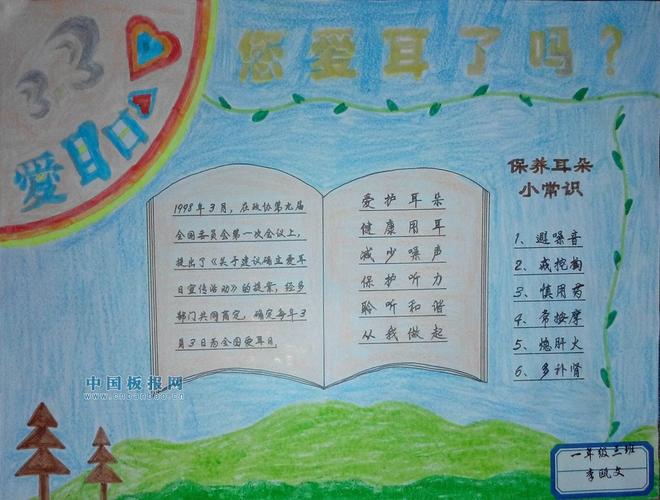 您爱耳了吗？
3.3
爱耳日
1998年3月，在政协第九届
全国委员会第一次会议上，
提出了《关于建议确立爱耳
日宣传活动》的提案，经多
部门共同商定，确定每年3
月3日为全国爱耳日
爱护耳朵
健康用耳
减少噪声
保护听力
聆听和谐
从我做起
保养耳朵
小常识
1、避噪音
2、戒挖掏
3、慎用药
4、常按摩
5、熄肝火
6、多补肾
中国板报网
www.cnbanbao.cn
一年级三班
李